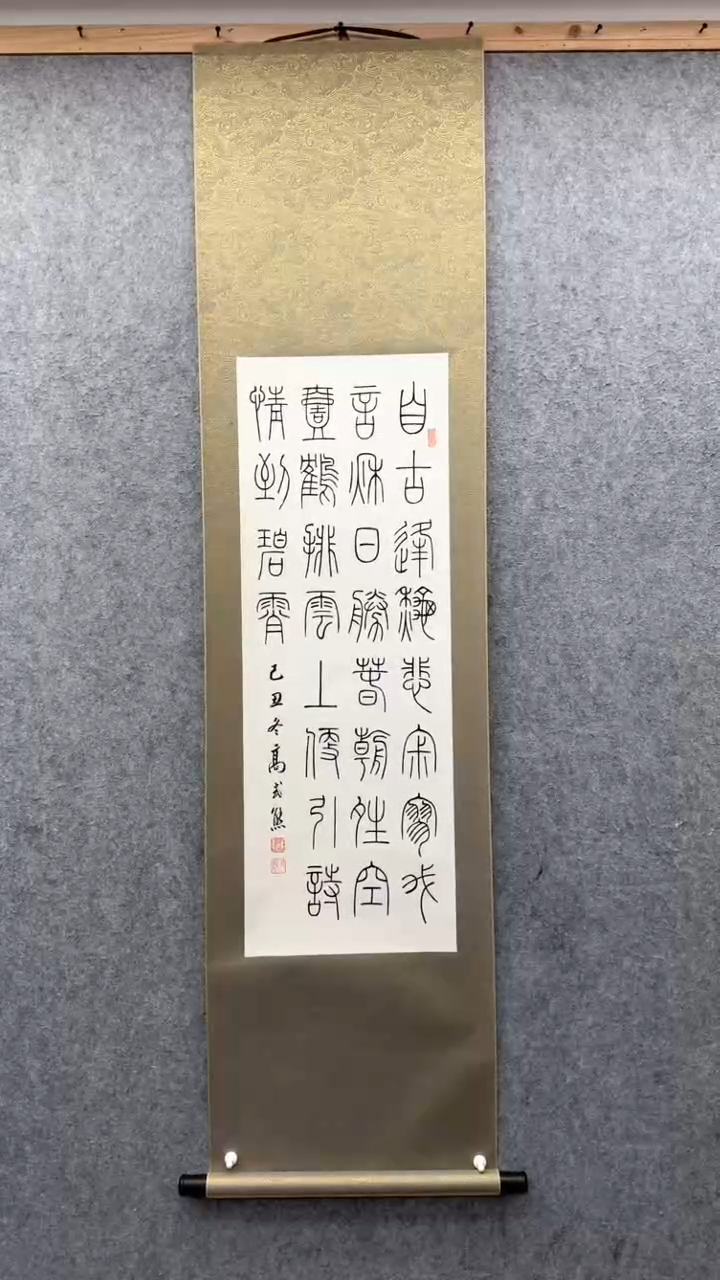 自古逢秋悲寂寥我
言秋日勝春朝晴空
壹鶴排雲上便引詩
情到碧霄
己丑冬高式熊